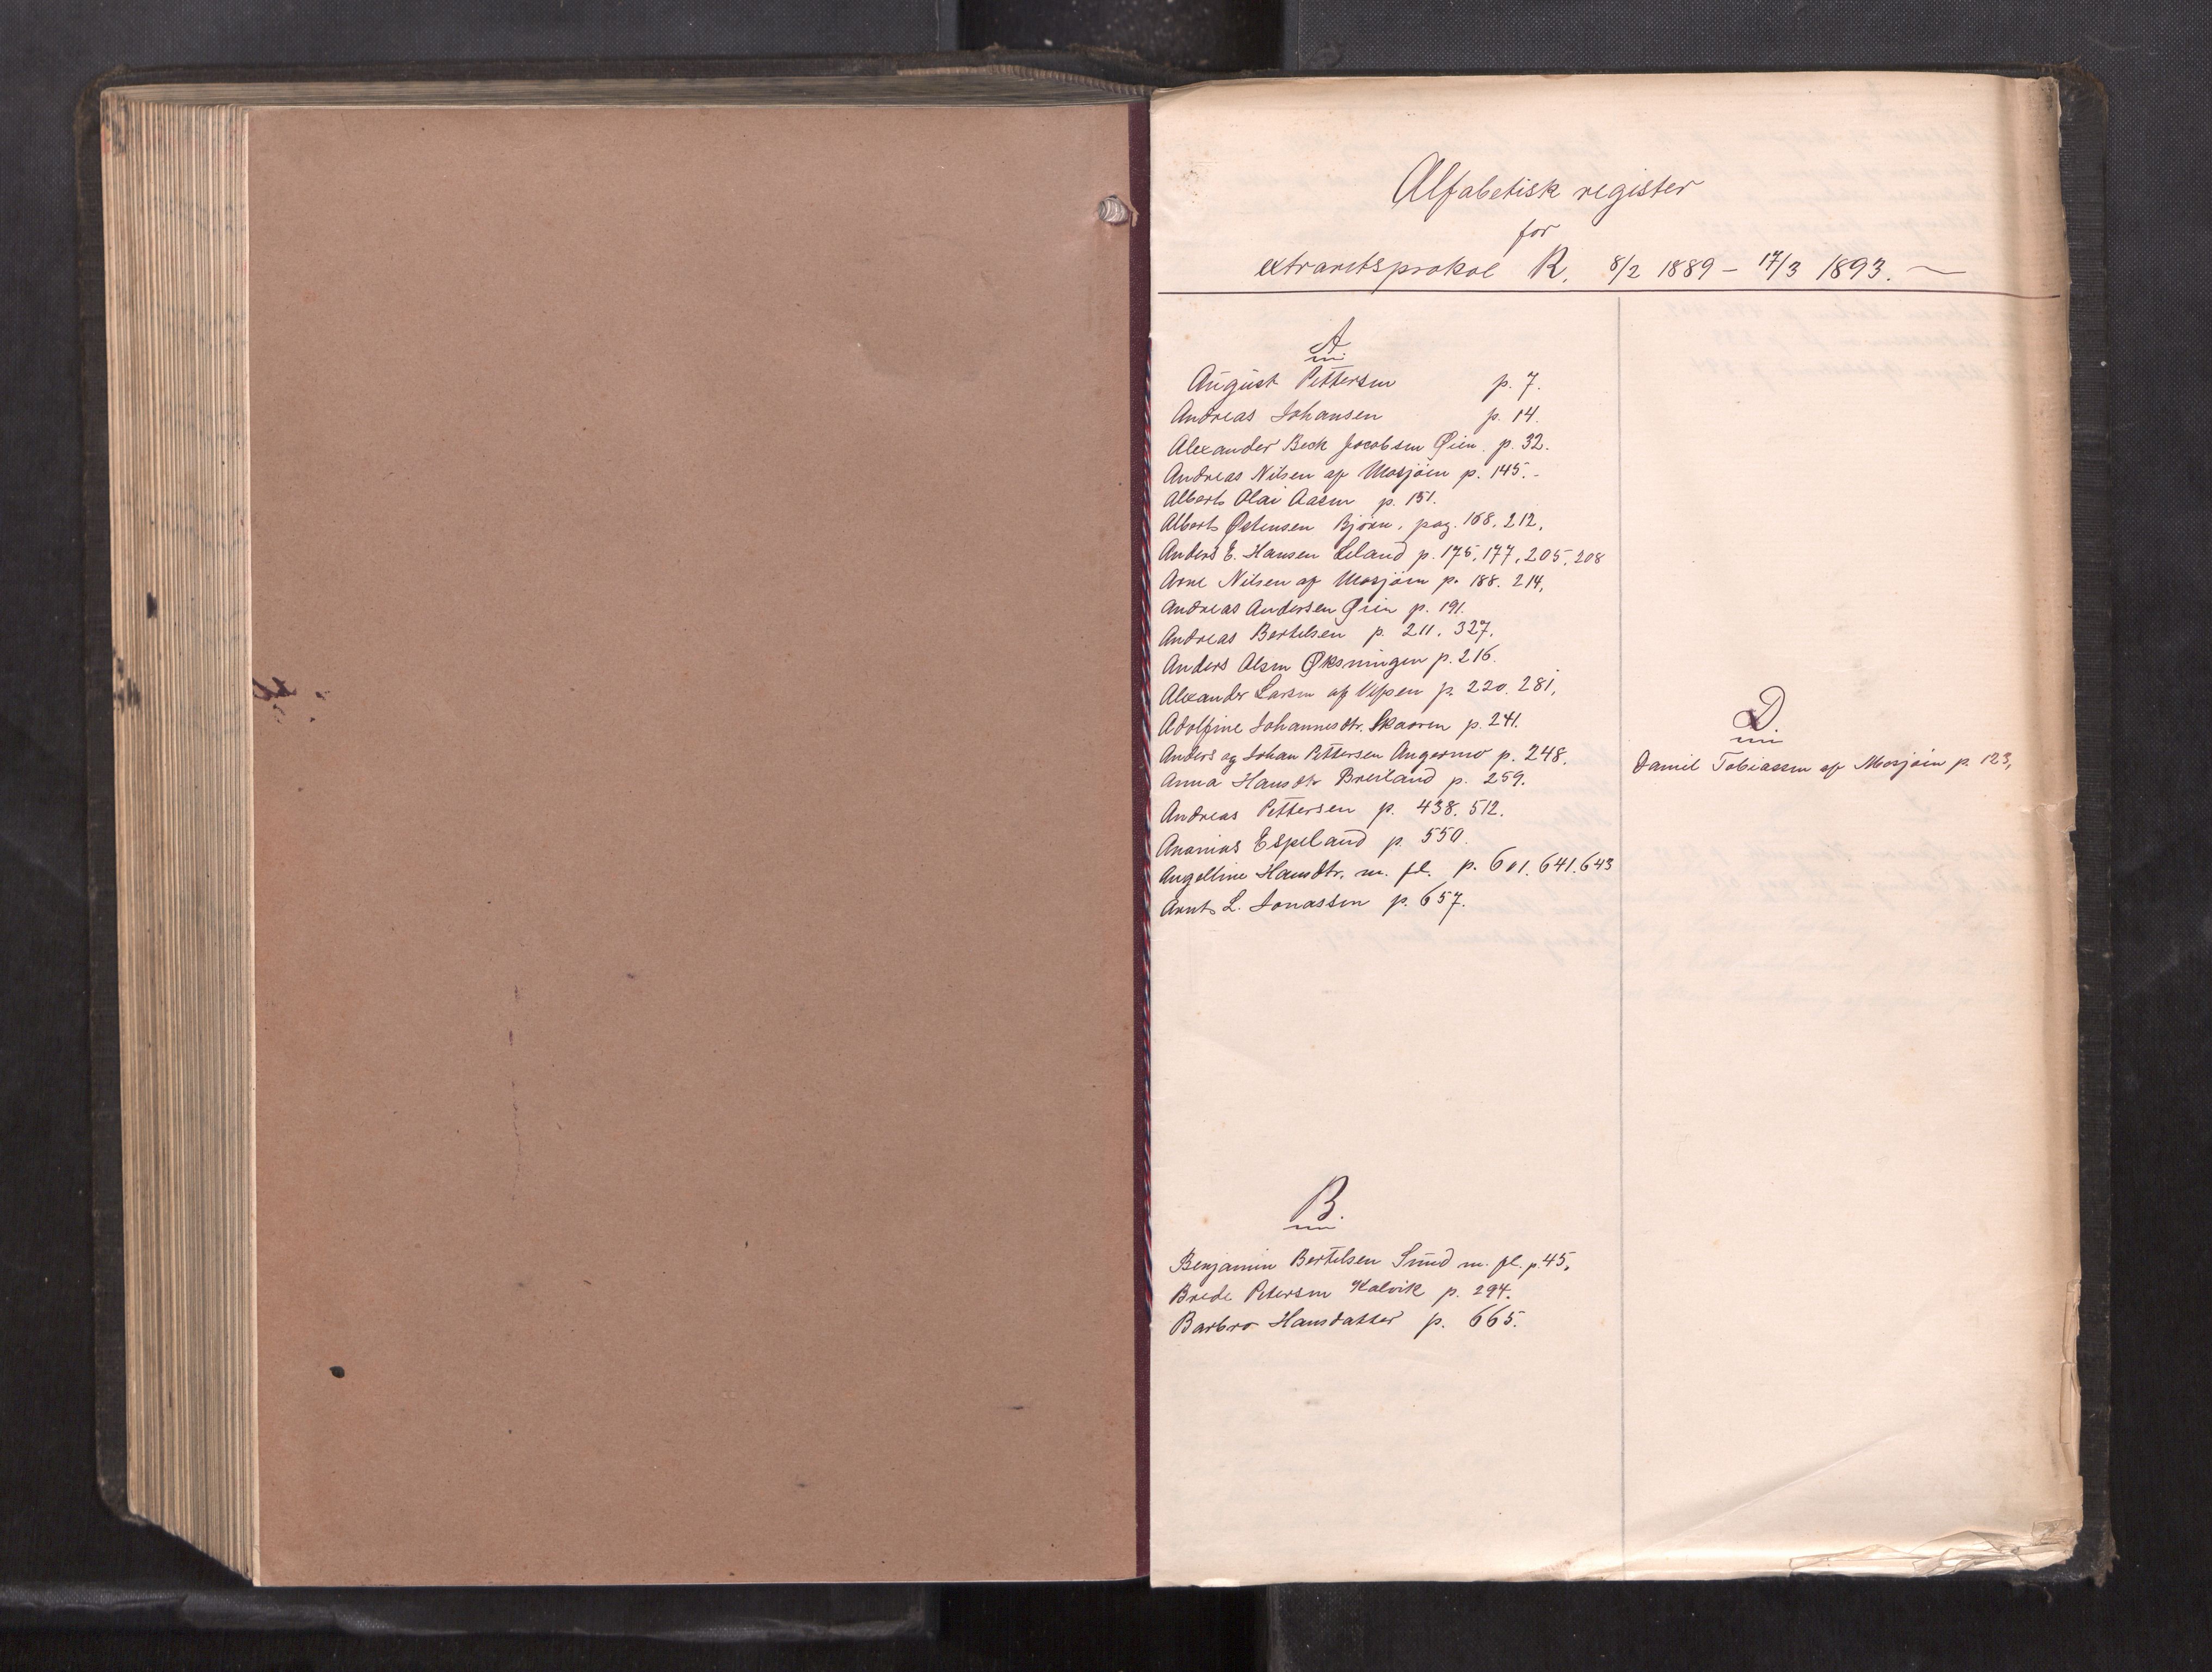 Alfabetisk register
for
extraretsprokol R. 8/2 1889 – 17/3 1893.
A
August Pettersen p. 7.
Andreas Johansen p. 14.
Alexander Beck Jacobsen Øien p. 32.
Andreas Nilsen af Mosjøen p. 145.-
Albert Olai Aasen p. 151.
Albert Østensen Bjørn, pag. 168, 212,
Anders E. Hansen Leland p. 175, 177, 205, 208
Arne Nilsen af Mosjøen p. 188. 214,
Andreas Andersen Øien p. 191.
Andreas Bertelsen p. 211. 327.
Anders Olsen Øksningen p. 216.
Alexander Larsen af Vefsen p. 220. 281,
Adolfine Johannesdtr. Skaaren p. 241.
Anders og Johan Pettersen Angermo p. 248,
Anna Hansdtr Breiland p. 259.
Andreas Pettersen p. 438. 512.
Ananias Espeland p. 550.
Angeltine Hansdtr. m. fl. p. 601. 641. 643
Arnt L. Jonassen p. 657.
B.
Benjamin Bertelsen Sund m. fl. p. 45,
Brede Petersen Kalvik p. 294.
Barbro Hansdatter p. 665.
D.
Daniel Tobiassen af Mosjøen p. 123,